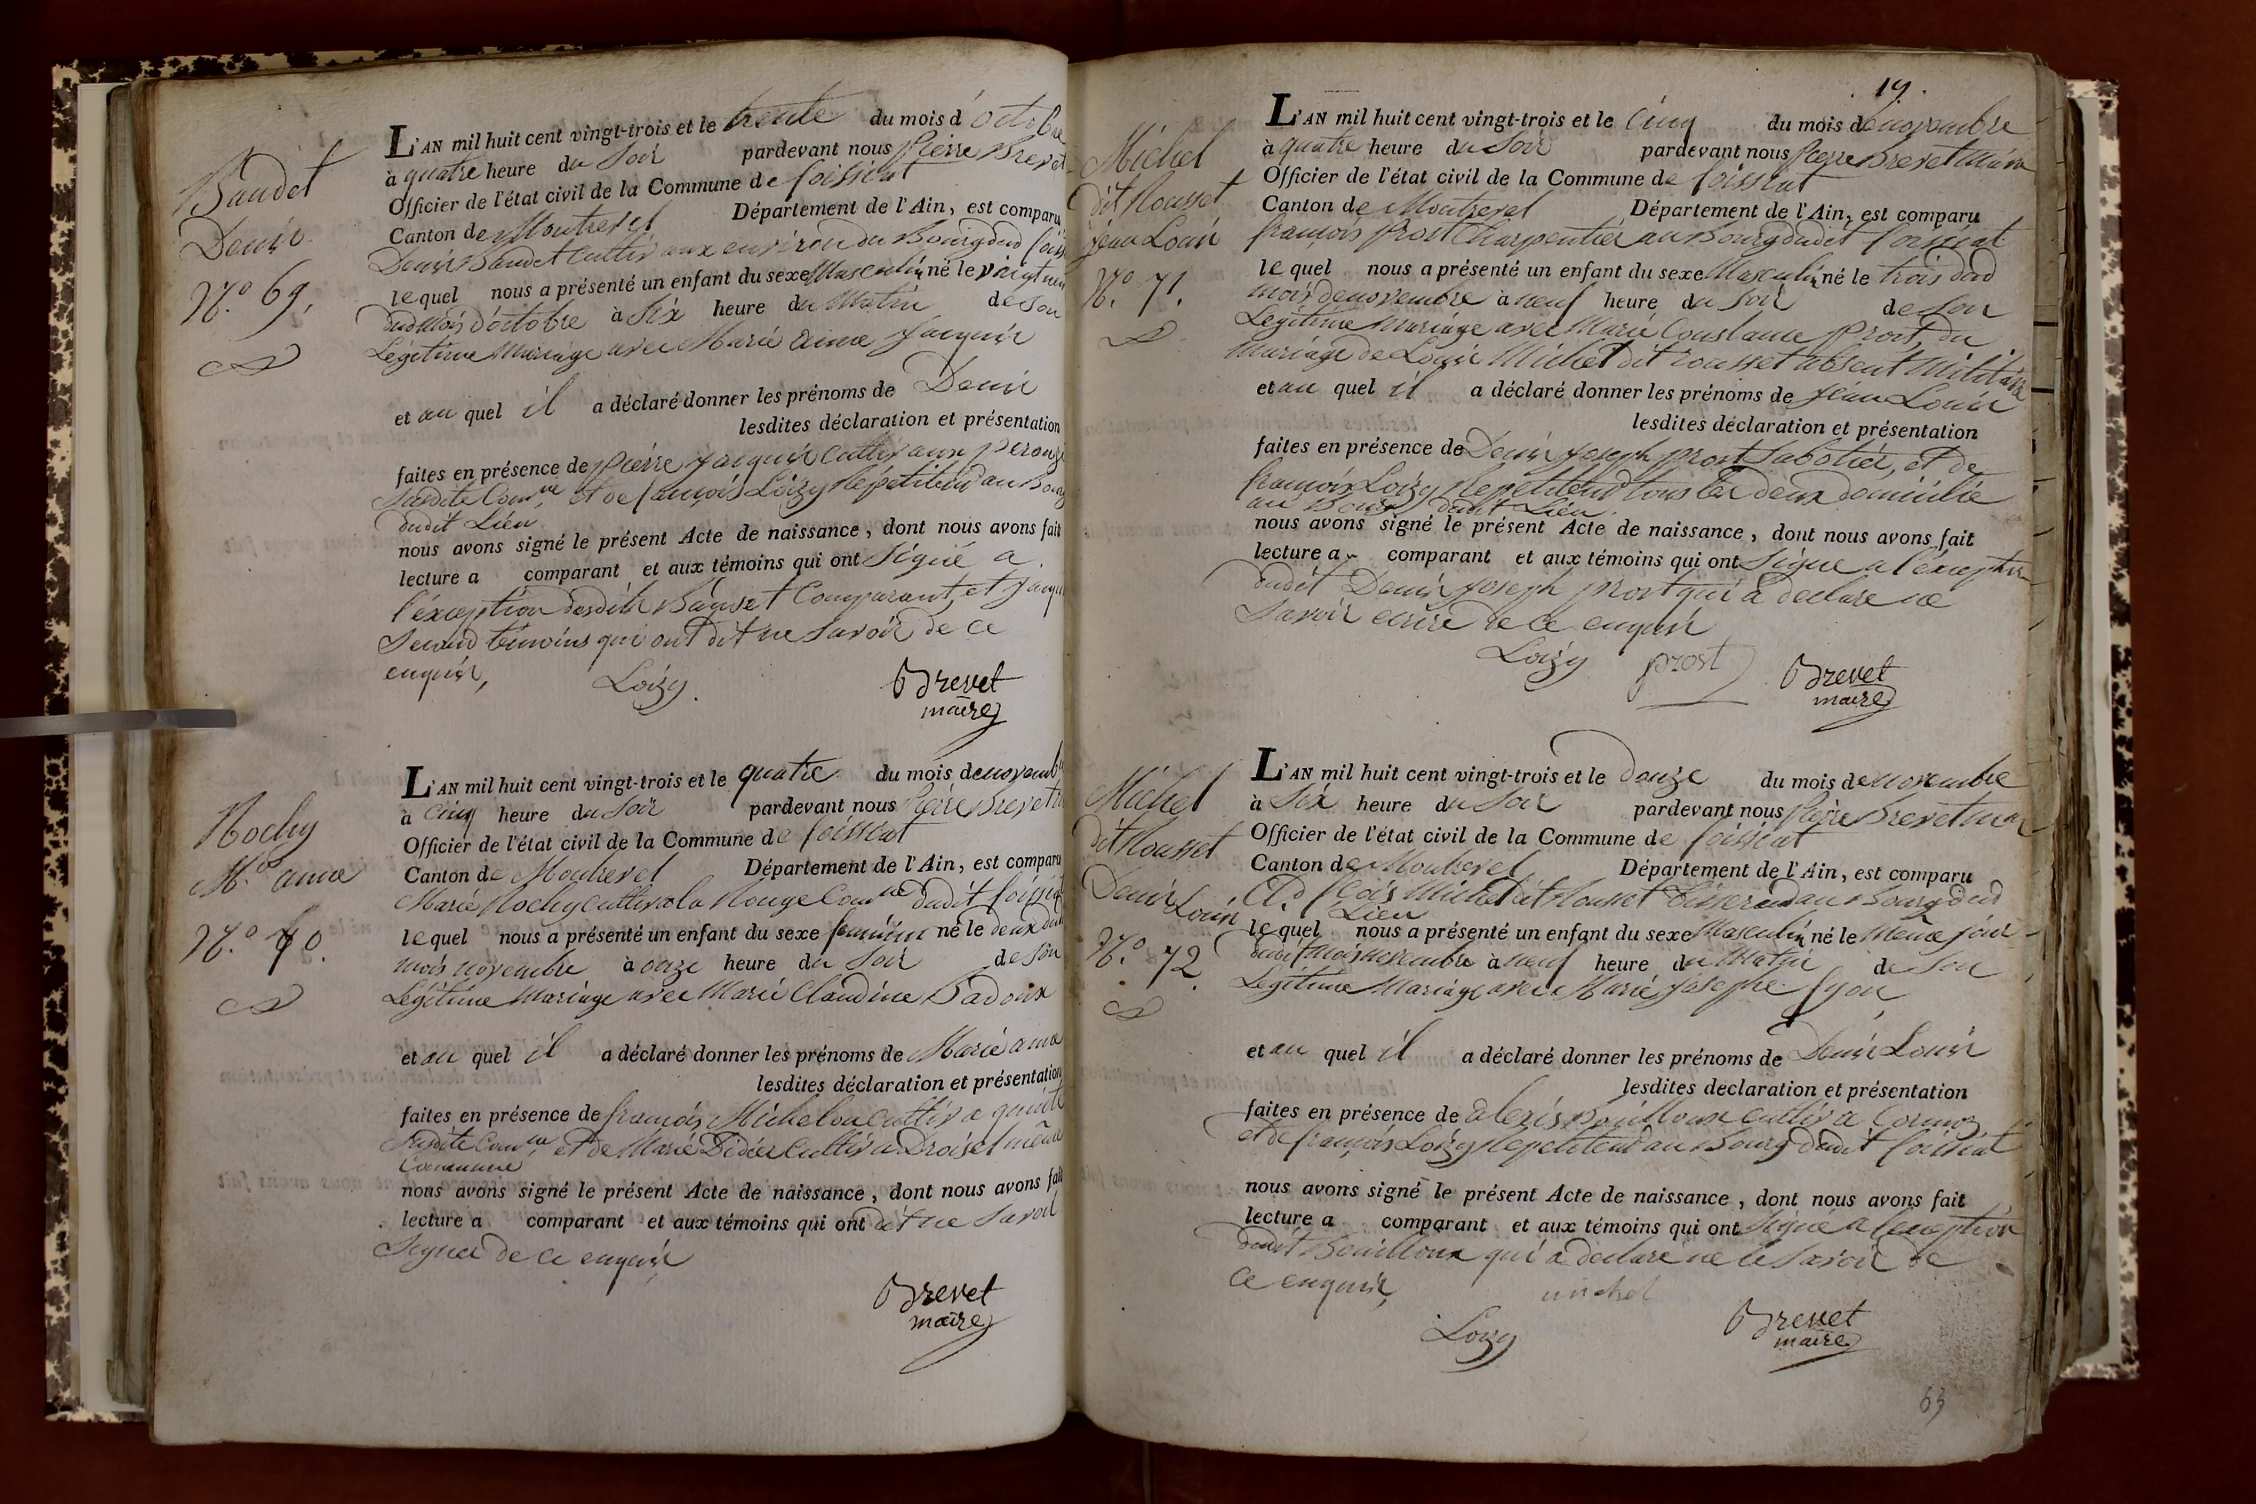 Baudet
Denis
N.o 69.
L'AN mil huit cent vingt-trois et le trente du mois d'octobre
à quatre heure du Soir pardevant nous Pierre Brevet
Officier de l'état civil de la Commune de foissiat
Canton de Montrevel Département de l'Ain, est comparu
Denis Baudet Cultivr aux environ du Bourg dud foiss
lequel nous a présenté un enfant du sexe Masculin né le vingt neu
dud Mois d'octobre à Six heure du Matin de Son
Légitime Mariage avec Marie aimé Jacquis
et au quel il a déclaré donner les prénoms de Denis
lesdites déclaration et présentation
faites en présence de Pierre Jacquis Cultivr aux perouz
Susdite Comune, et de françois Loizy Répétiteur au Bourg
dudit Lieu
nous avons signé le présent Acte de naissance, dont nous avons fait
lecture a comparant et aux témoins qui ont Signé a
l'éxception desdits Baudet Comparant, et Jacqu
Second témoins qui ont dit ne Savoir de ce
enquis,
Loizy.
Brevet
maire
Rochy
M.ie anne
N.o 70.
L'AN mil huit cent vingt-trois et le quatre du mois de novemb
à Cinq heure du Soir pardevant nous Pierre Brevet m
Officier de l'état civil de la Commune de foissiat
Canton de Montrevel Département de l'Ain, est comparu
Marie Rochy Cultivr a la Rouge Comne dudit foissiat
lequel nous a présenté un enfant du sexe feminin né le deux dud
mois novembre à onze heure du Soir de Son
Légitime Mariage avec Marie Claudine Badoux
et au quel il a déclaré donner les prénoms de Marie anne
lesdites déclaration et présentation
faites en présence de françois Michelon Cultivr a
Susdite Comne, et de Marie Didier Cultivr a Droisel même
Commune
nous avons signé le présent Acte de naissance, dont nous avons fait
lecture a comparant et aux témoins qui ont dit ne Savoir
Signer de ce enquis
Brevet
maire
19.
Michel
dit Rousset
Jean Louis
N.o 71.
L'AN mil huit cent vingt-trois et le Cinq du mois de novembre
à quatre heure du Soir pardevant nous Pierre Brevet Maire
Officier de l'état civil de la Commune de foissiat
Canton de Montrevel Département de l'Ain, est comparu
françois Prost Charpentier au Bourg dudit foissiat
lequel nous a présenté un enfant du sexe Masculin né le trois dud
mois de novembre à neuf heure du Soir de Son
Légitime Mariage avec Marie Constance Prost, du
Mariage de Louis Michel dit rousset absent Militaire
et au quel il a déclaré donner les prénoms de Jean Louis
lesdites déclaration et présentation
faites en présence de Denis Joseph Prost Sabotier, et de
françois Loizy Repetiteur tous les deux domicilié
au Bourg dudit Lieu.
nous avons signé le présent Acte de naissance, dont nous avons fait
lecture a comparant et aux témoins qui ont Signé a l'éxception
dudit Denis Joseph Prost qui a déclaré ne
Savoir écrire de ce enquis
Loizy prost Brevet
maire
Michel
dit Rousset
Denis Louis
N.o 72.
L'AN mil huit cent vingt-trois et le Douze du mois de novembre
à Six heure du Soir pardevant nous Pierre Brevet Maire
Officier de l'état civil de la Commune de foissiat
Canton de Montrevel Département de l'Ain, est comparu
Cl.d fcois Michel dit Rousset tisserand au Bourg dud
Lieu
lequel nous a présenté un enfant du sexe Masculin né le Même jour
dudit mois novembre à neuf heure du Matin de Son
Légitime Mariage avec Marie Josephe Gyon
et au quel il a déclaré donner les prénoms de Denis Louis
lesdites declaration et présentation
faites en présence de alexis Bouilloux Cultivr a Cormoz
et de françois Loizy Repetiteur au Bourg dudit foissiat
nous avons signé le présent Acte de naissance, dont nous avons fait
lecture a comparant et aux témoins qui ont Signé a l'éxception
dudit Bouilloux qui a déclaré ne le Savoir de
ce enquis,
michel
Loizy
Brevet
maire
63